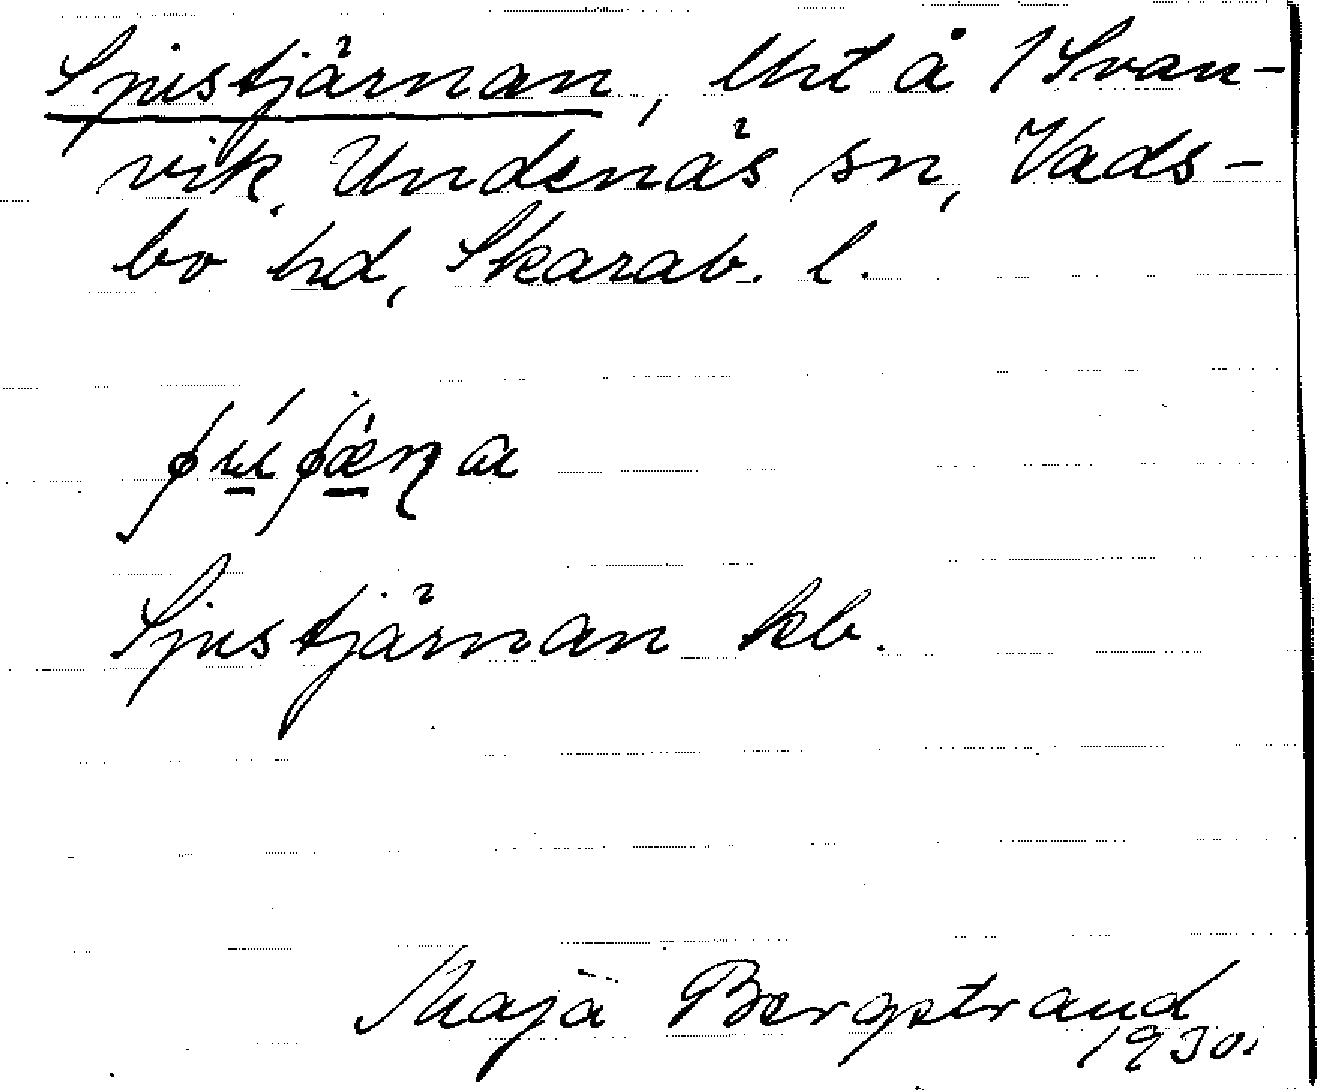 Sjustjärnan, Uht å 1 Svan-
vik, Undenäs sn, Vads-
bo hd, Skarab. l.
Sjustjärnan kb.
Maja Bergstrand
1930.